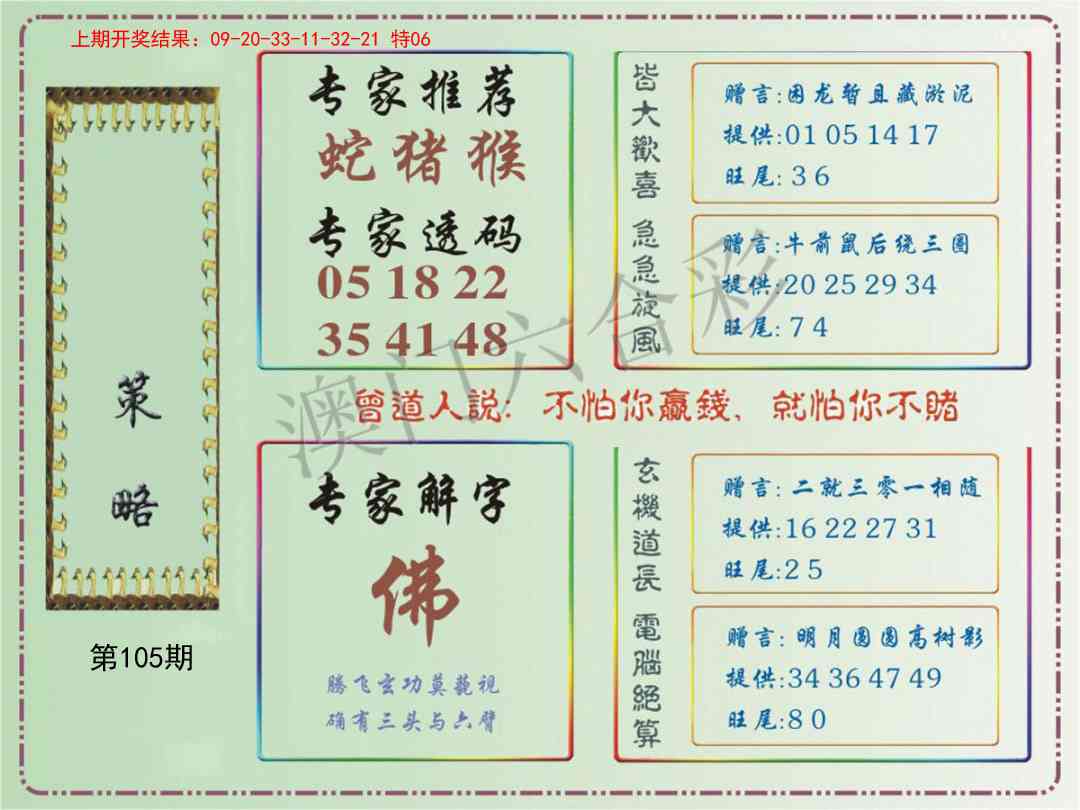 上期开奖结果：09-20-33-11-32-21 特06
策略
第105期
专家推荐
蛇猪猴
专家透码
05 18 22
35 41 48
皆大歡喜
赠言:困龙暂且藏淤泥
提供:01 05 14 17
旺尾: 3 6
急急旋風
赠言:牛前鼠后绕三圈
提供:20 25 29 34
旺尾: 7 4
澳门六合彩
曾道人説: 不怕你赢錢, 就怕你不賭
专家解字
佛
腾飞玄功莫藐视
确有三头与六臂
玄機道長
赠言: 二就三零一相随
提供:16 22 27 31
旺尾:2 5
電腦絕算
赠言: 明月圆圆高树影
提供:34 36 47 49
旺尾:8 0